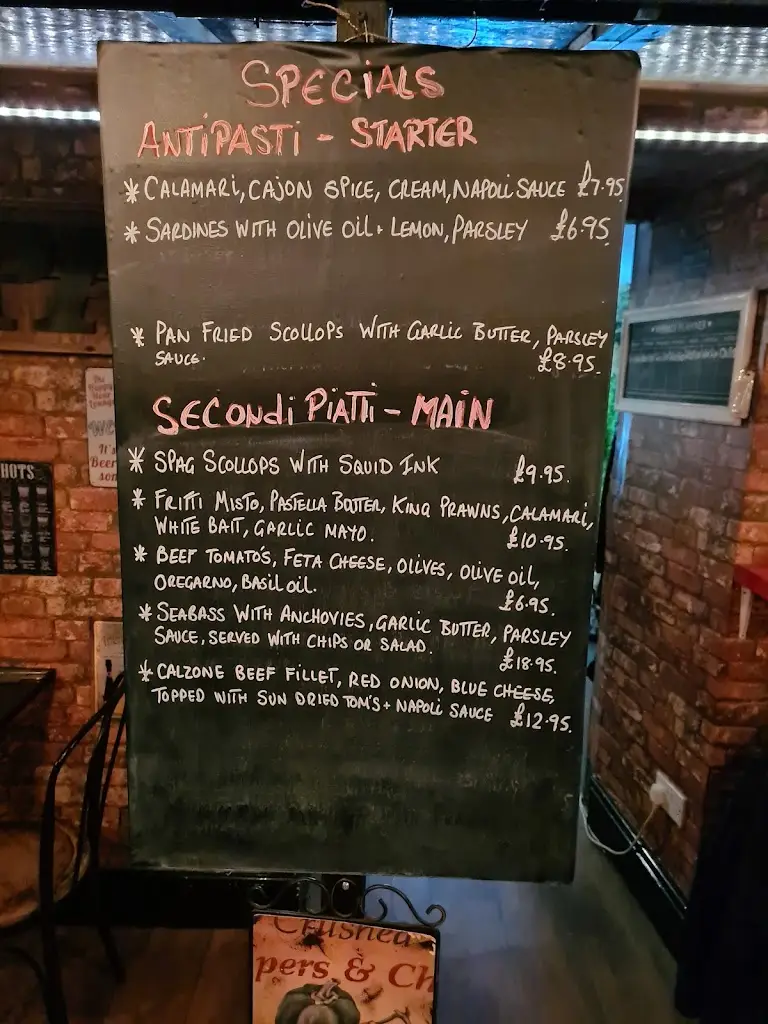 SPECIALS
ANTIPASTI - STARTER
* CALAMARI, CAJON SPICE, CREAM, NAPOLI SAUCE £7.95
* SARDINES WITH OLIVE OIL + LEMON, PARSLEY £6.95
* PAN FRIED SCOLLOPS WITH GARLIC BUTTER, PARSLEY
SAUCE. £8.95.
SECONDI PIATTI - MAIN
* SPAG SCOLLOPS WITH SQUID INK £9.95.
* FRITTI MISTO, PASTELLA BOTTER, KING PRAWNS, CALAMARI,
WHITE BAIT, GARLIC MAYO. £10.95.
* BEEF TOMATO'S, FETA CHEESE, OLIVES, OLIVE OIL,
OREGARNO, BASIL OIL. £6.95.
* SEABASS WITH ANCHOVIES, GARLIC BUTTER, PARSLEY
SAUCE, SERVED WITH CHIPS OR SALAD. £18.95.
* CALZONE BEEF FILLET, RED ONION, BLUE CHEESE,
TOPPED WITH SUN DRIED TOM'S + NAPOLI SAUCE £12.95.
HOTS
It's
Beer
Crushed
pers & Ch